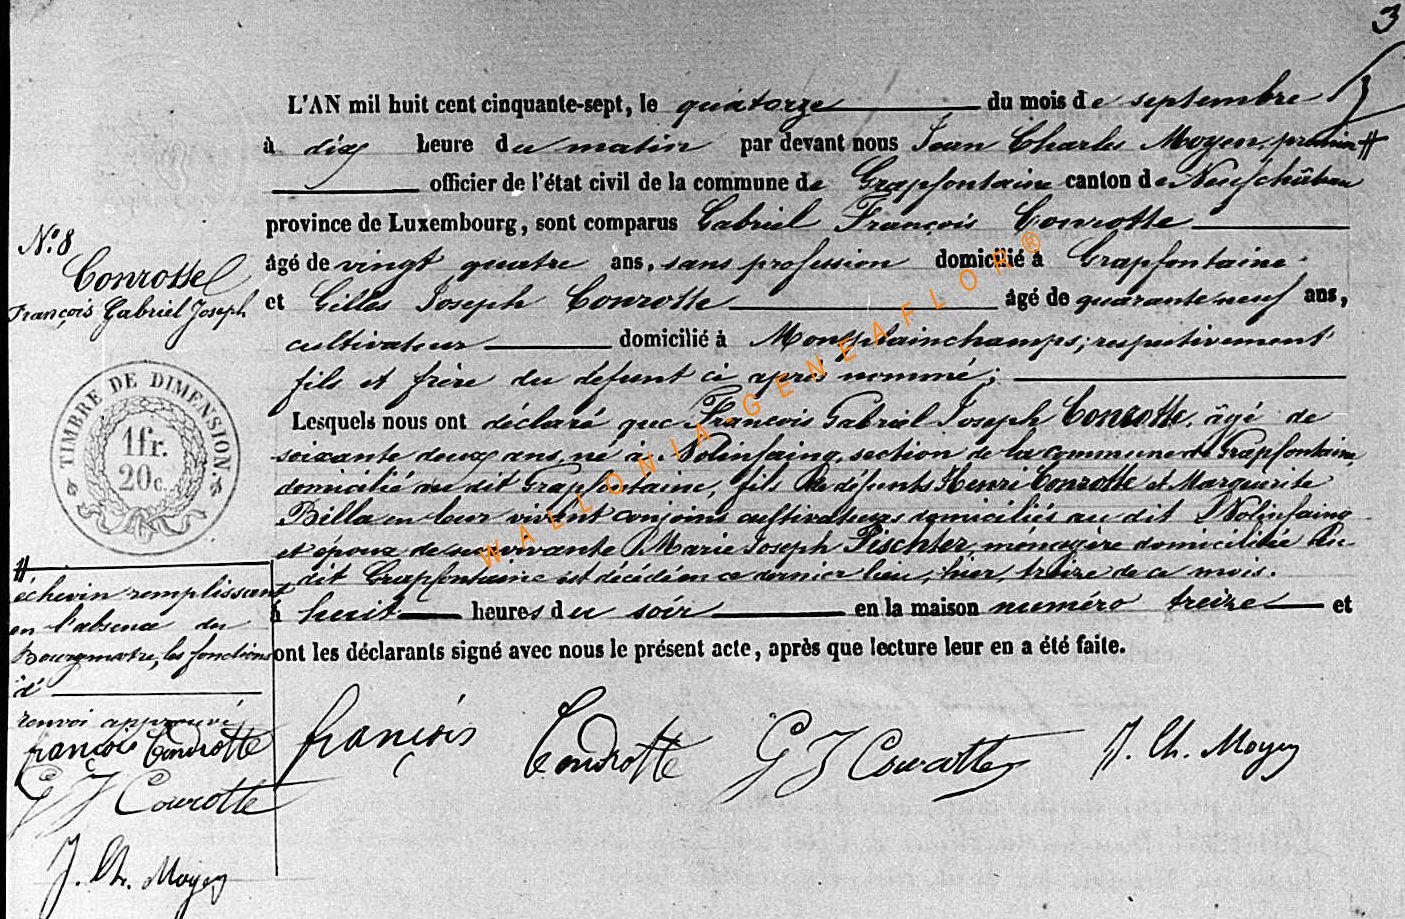 3
L'AN mil huit cent cinquante-sept, le quatorze du mois de septembre
à dix heure du matin par devant nous Jean Charles Moyen, premier #
officier de l'état civil de la commune de Grapfontaine canton de Neufchâteau
province de Luxembourg, sont comparus Gabriel François Conrotte
âgé de vingt quatre ans, sans profession domicilié à Grapfontaine
et Gilles Joseph Conrotte âgé de quarante neuf ans,
cultivateur domicilié à Montplainchamps; respectivement
fils et frère du défunt ci après nommé;
Lesquels nous ont déclaré que François Gabriel Joseph Conrotte, âgé de
soixante deux ans, né à Nolinfaing, section de la commune de Grapfontaine,
domicilié au dit Grapfontaine, fils de défunts Henri Conrotte et Marguerite
Billa en leur vivant conjoins cultivateurs domiciliés au dit Nolinfaing
et époux de survivante Marie Joseph Pischter, ménagère domiciliée au
dit Grapfontaine est décédé en ce dernier lieu, hier, treize de ce mois.
à huit heures du soir en la maison numéro treize et
ont les déclarants signé avec nous le présent acte, après que lecture leur en a été faite.
françois Conrotte G J Conrotte J. Ch. Moyen
N° 8
Conrotte
François Gabriel Joseph
TIMBRE DE DIMENSION
1 fr.
20 c.
#
échevin remplissant
en l'absence du
Bourgmestre, les fonctions
d'
renvoi approuvé
françois Conrotte
G J Conrotte
J. Ch. Moyen
WALLONIA-GENEAFLOR®